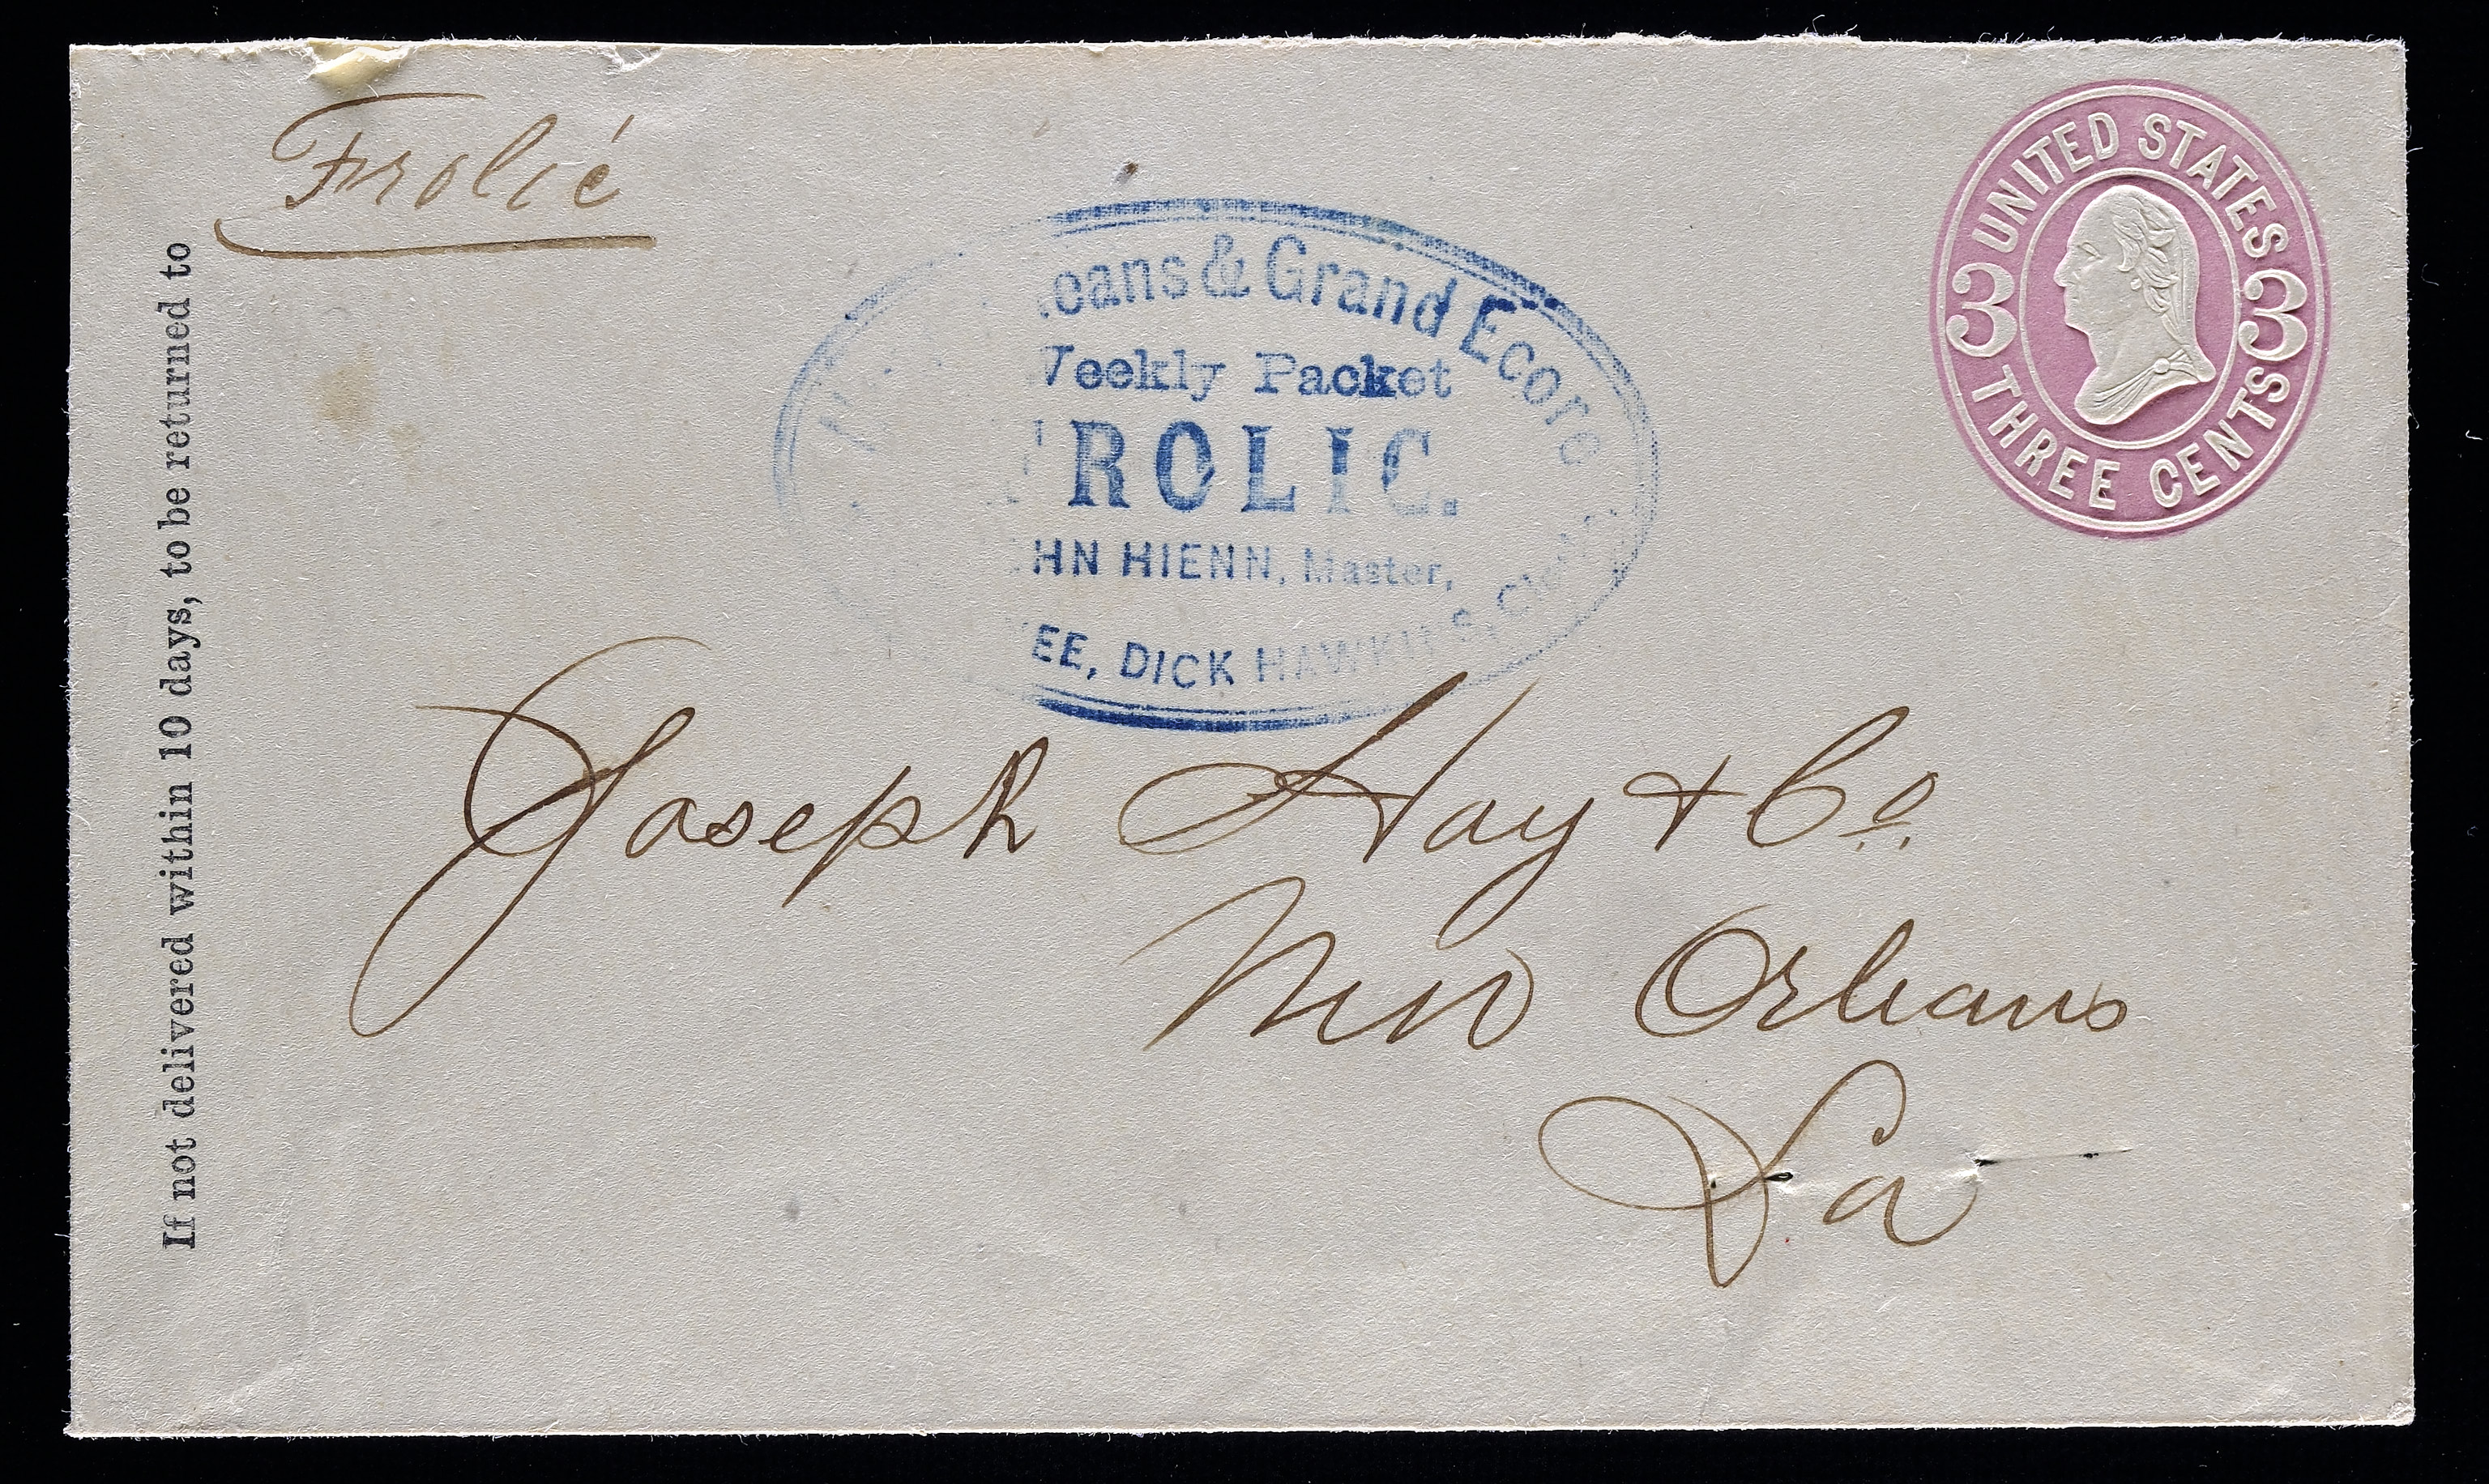 Frolic
If not delivered within 10 days, to be returned to
& Grand Ecore
Packet
ROLIC.
HIENN, Master,
DICK HAWKINS,
UNITED STATES
3 3
THREE CENTS
Joseph Hoy + Co.
New Orleans
La